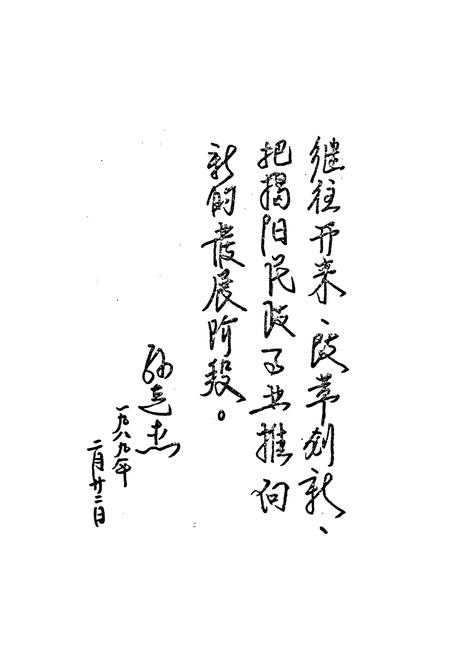 继往开来、改革创新、
把揭阳民政事业推向
新的發展阶段。
孙杰
一九八九年
二月廿二日